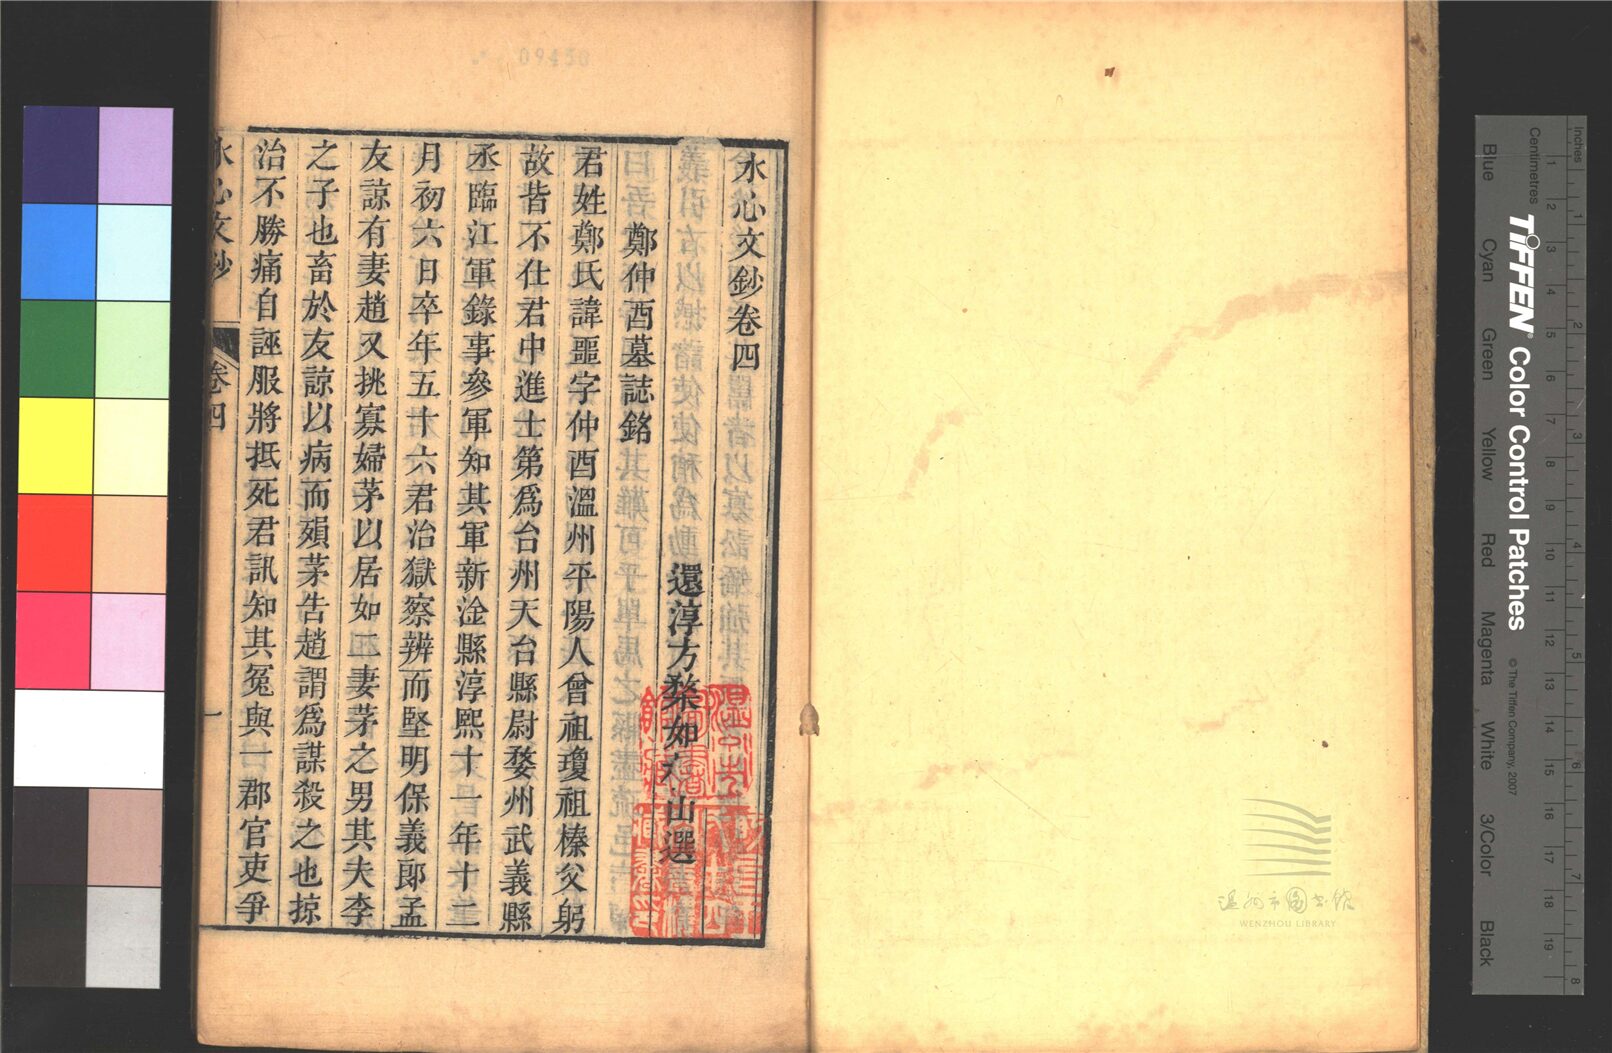 水心文鈔卷四
還淳方楘如文輈選
鄭仲酉墓誌銘
君姓鄭氏諱噩字仲酉溫州平陽人曾祖瓊祖榛父躬
故皆不仕君中進士第爲台州天台縣尉婺州武義縣
丞臨江軍錄事參軍知其軍新淦縣淳熙十一年十二
月初六日卒年五十六君治獄察辨而堅明保義郎孟
友諒有妻趙又挑寡婦茅以居如二妻茅之男其夫李
之子也畜於友諒以病而殞茅告趙謂爲謀殺之也掠
治不勝痛自誣服將抵死君訊知其冤與一郡官吏爭
水心文鈔
卷四
一
09430
溫州市圖書館
WENZHOU LIBRARY
Inches
Centimetres
TIFFEN Color Control Patches
© The Tiffen Company, 2007
Blue
Cyan
Green
Yellow
Red
Magenta
White
3/Color
Black